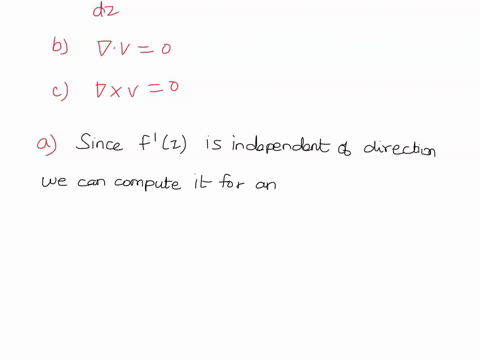 dz
b) ∇·V = 0
c) ∇×V = 0
a) Since f'(z) is independent of direction
we can compute it for an